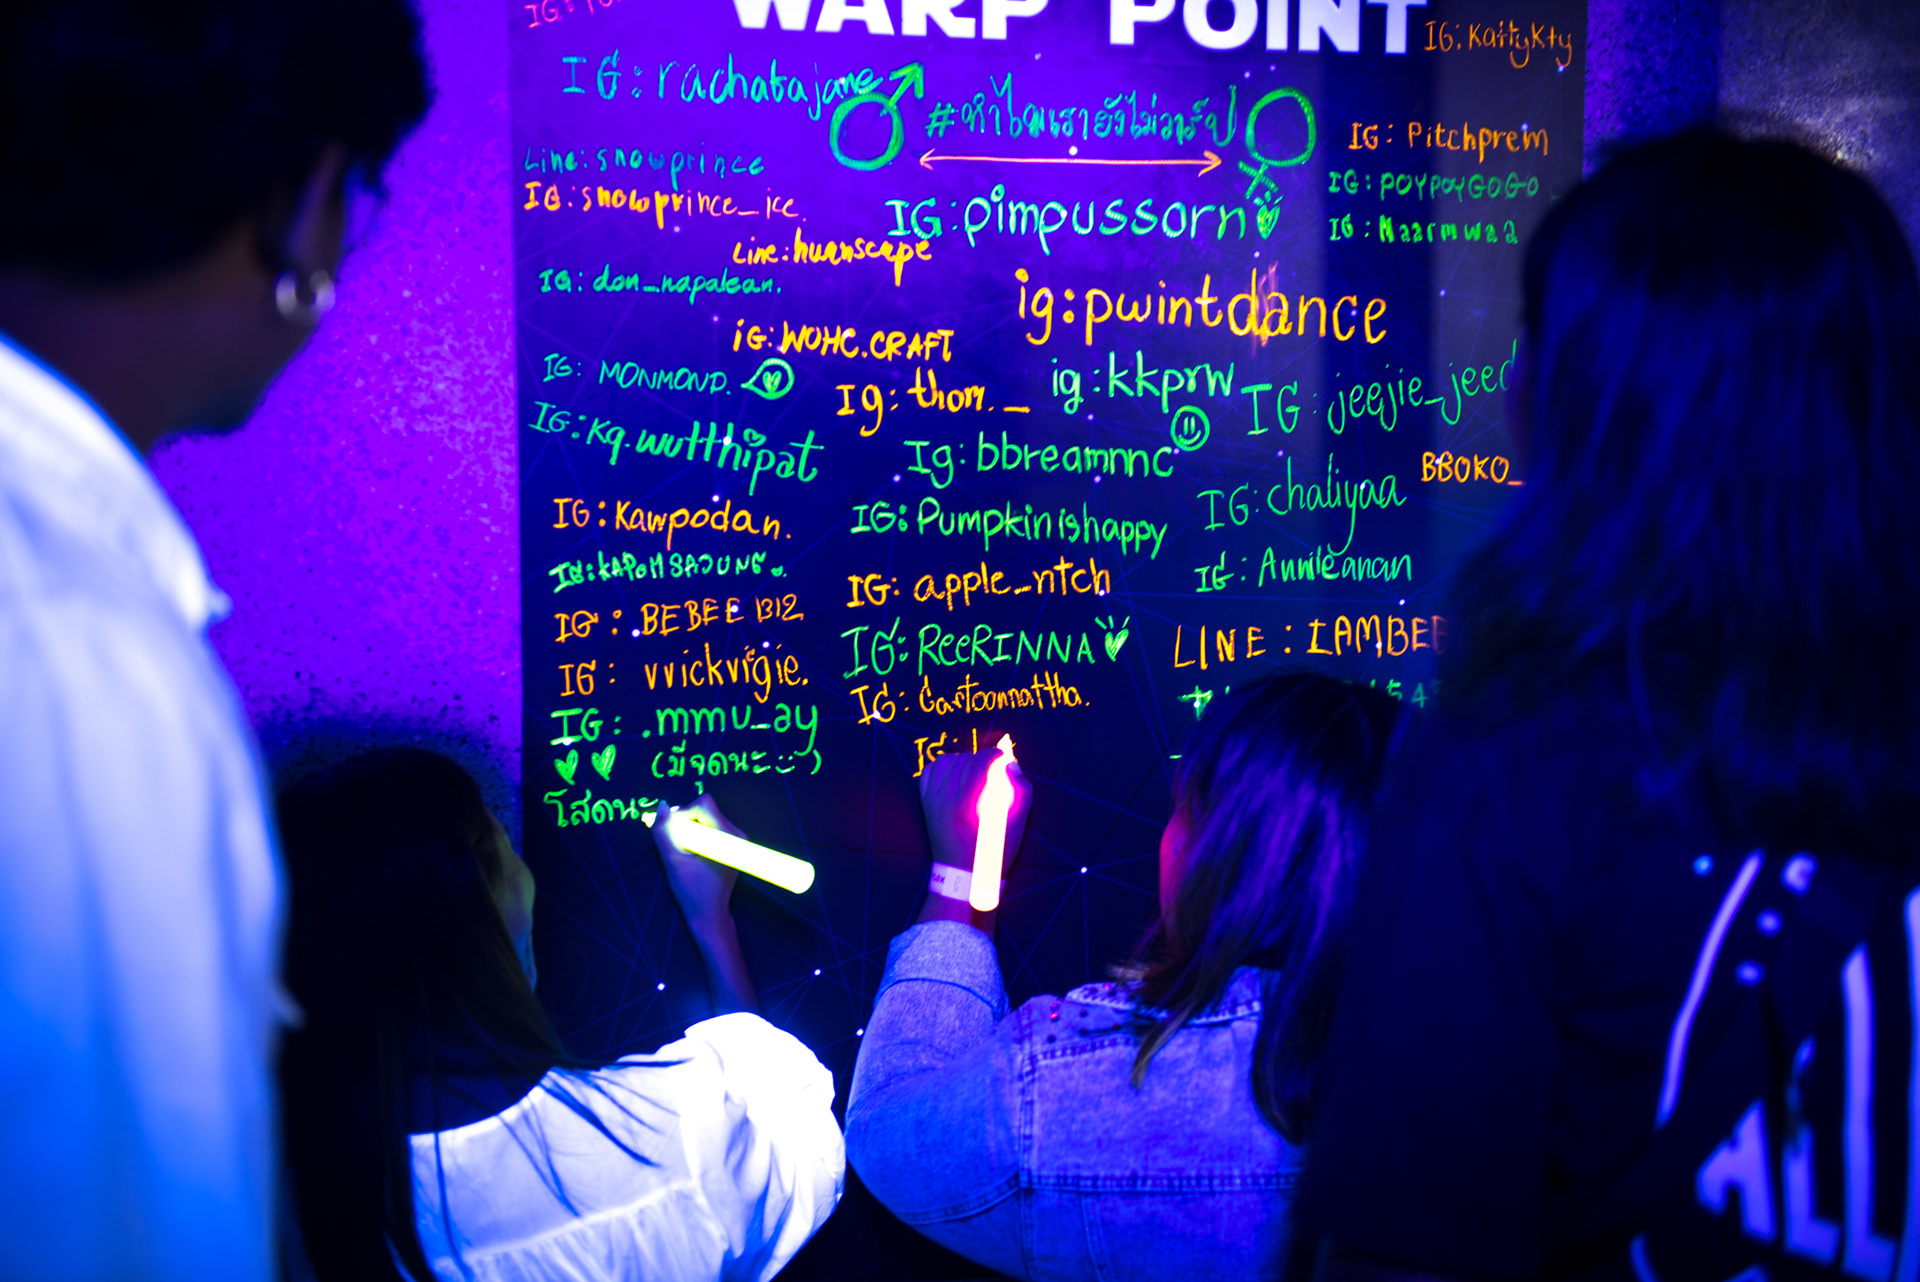 WARP POINT
IG: KaityKty
IG: rachatajane
#ทำไมเรายังไม่วาร์ป
IG: Pitchprem
Line: snowprince
IG: snowprince_ice.
IG: POYPOYGOGO_
IG: pimpussorn
IG: Naarmwaa
Line: huanscape
IG: don_napalean.
ig: pwintdance
iG: WOHC.CRAFT
IG: MONMOND.
Ig: thom._
ig: kkprw
IG: jeejie_jeed
IG: Kq.wutthipat
Ig: bbreamnnc
BBOKO_
IG: chaliyaa
IG: Kawpodan.
IG: Pumpkinishappy
IG: KAPOMSAJUNG.
IG: apple_ntch
IG: Annileanan
IG: .BEBEE1312
IG: ReeRINNA
LINE: IAMBEE
IG: vvickvigie.
IG: Cartoonnattha.
IG: .mmu_ay
(มีจุดนะ)
IG:
โสดนะ
ALL